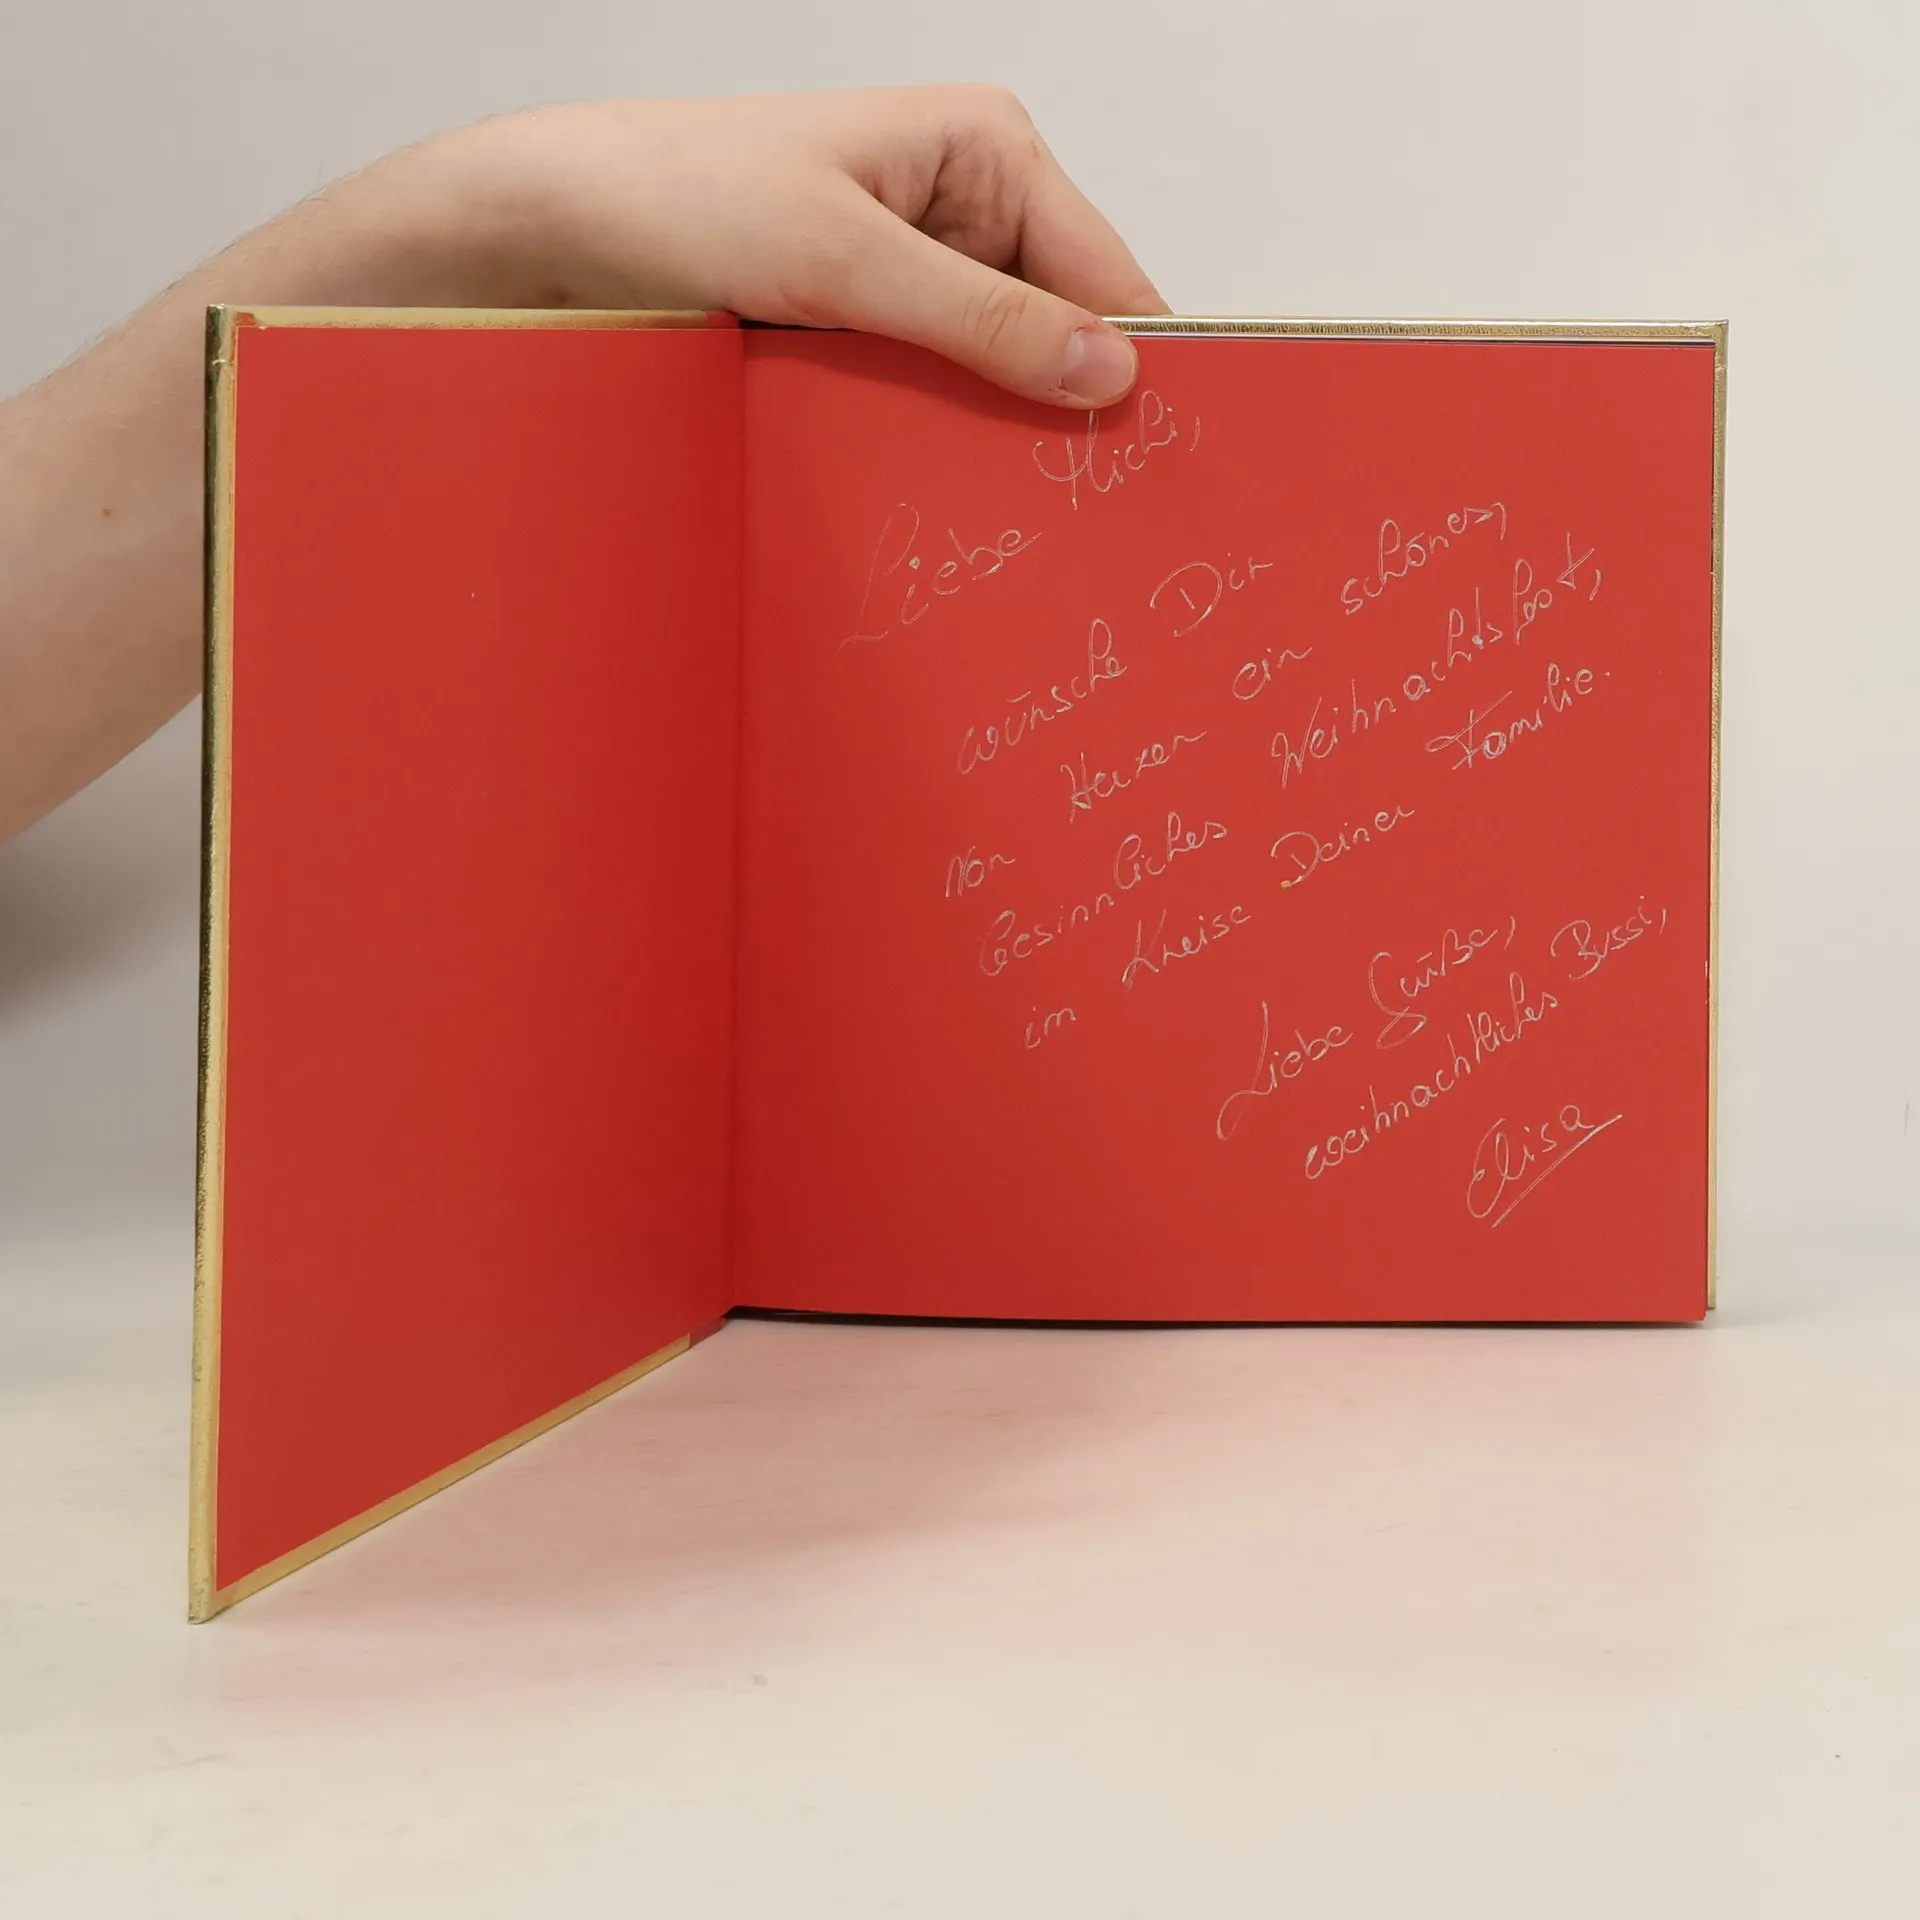 Liebe Michi,
wünsche Dir
von Herzen ein schönes,
besinnliches Weihnachtsfest,
im Kreise Deiner Familie.
Liebe Grüße,
weihnachtliches Bussi,
Elisa